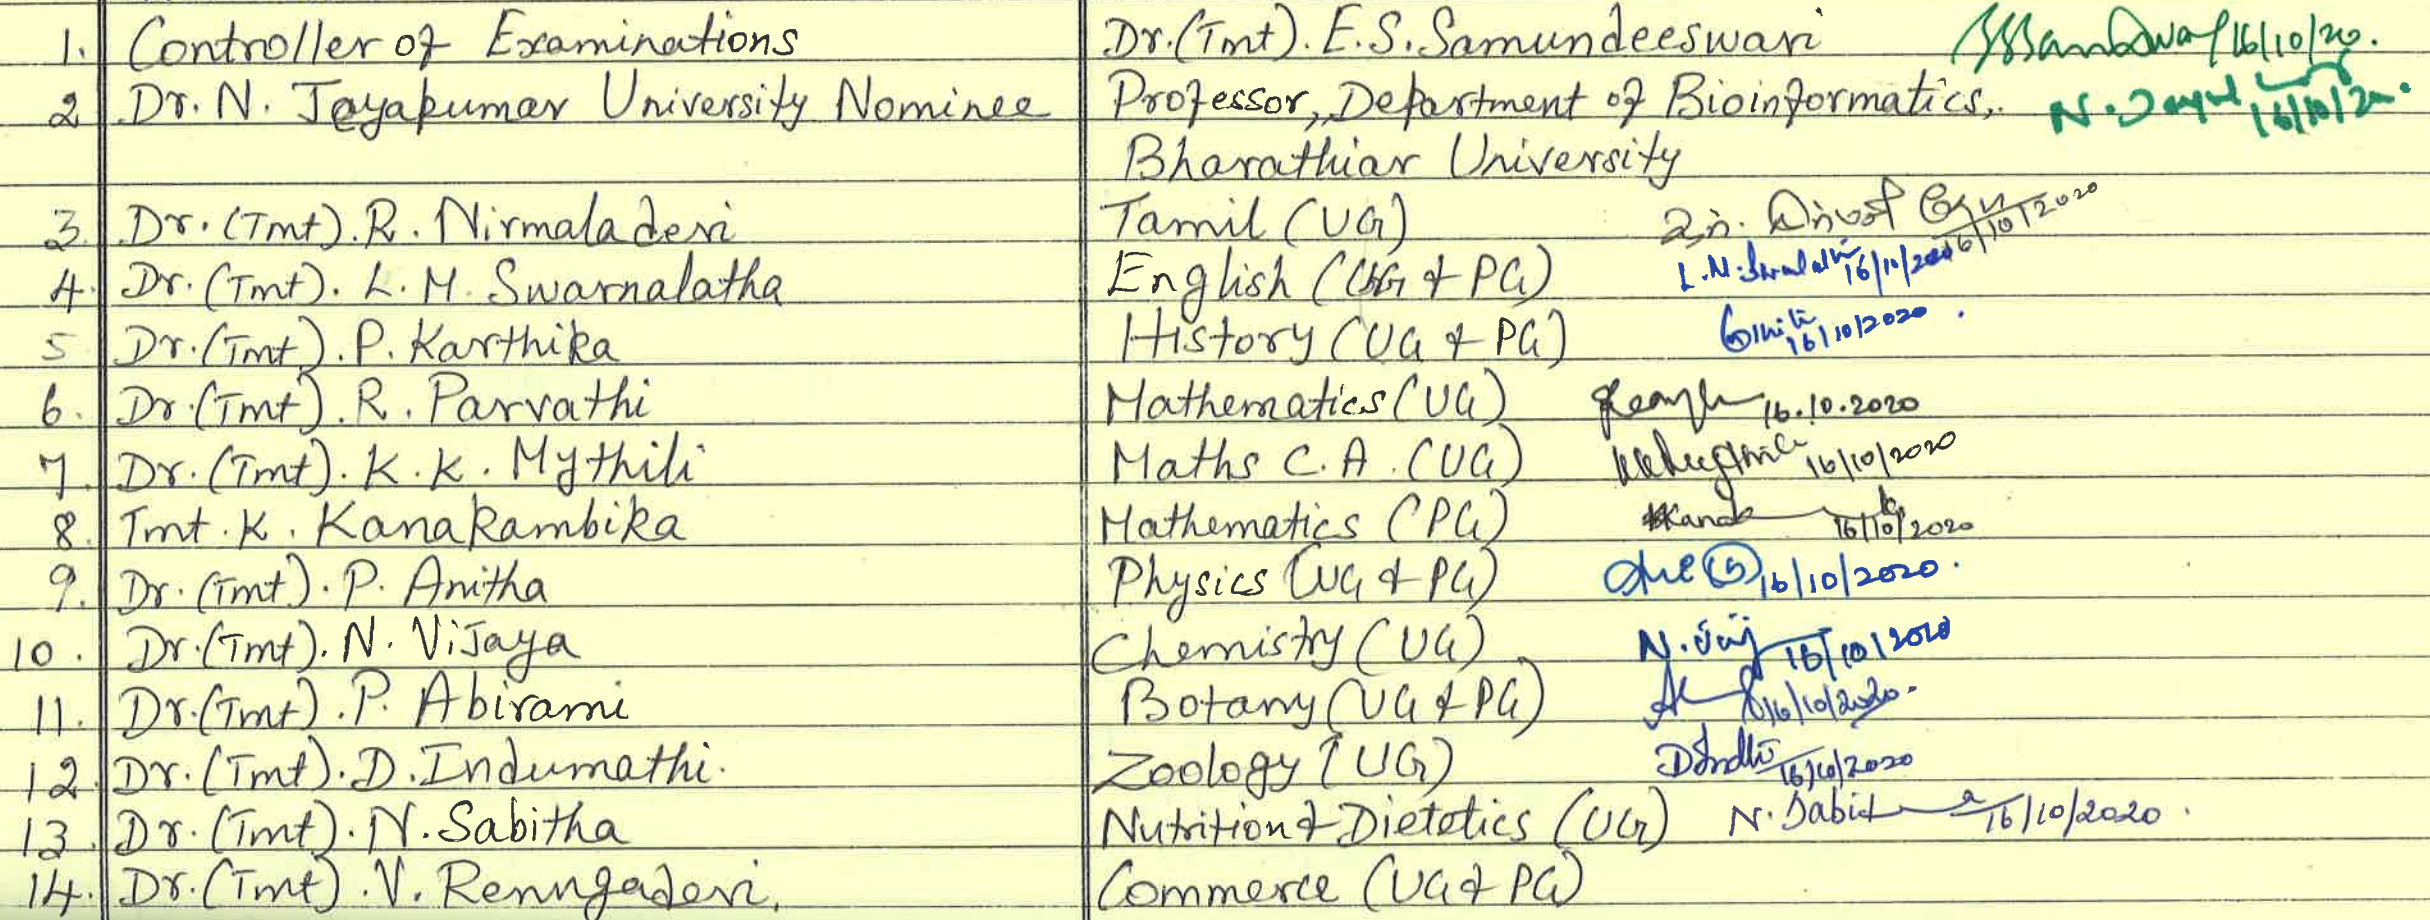 1. Controller of Examinations Dr.(Tmt). E.S. Samundeeswari 16/10/20.
2 Dr. N. Jayakumar University Nominee Professor, Department of Bioinformatics, N. 16/10/20.
Bharathiar University
3. Dr. (Tmt). R. Nirmaladevi Tamil (UG) 16/10/2020
4. Dr. (Tmt). L. M. Swarnalatha English (UG & PG) L.M. 16/10/2020
5 Dr. (Tmt). P. Karthika History (UG & PG) 16/10/2020.
6. Dr. (Tmt). R. Parvathi Mathematics (UG) 16.10.2020
7. Dr. (Tmt). K. K. Mythili Maths C.A. (UG) 16/10/2020
8. Tmt. K. Kanakambika Mathematics (PG) 16/10/2020
9. Dr. (Tmt). P. Anitha Physics (UG & PG) 16/10/2020.
10. Dr. (Tmt). N. Vijaya Chemistry (UG) N. 16/10/2020
11. Dr. (Tmt). P. Abirami Botany (UG & PG) 16/10/2020.
12. Dr. (Tmt). D. Indumathi. Zoology (UG) 16/10/2020
13. Dr. (Tmt). N. Sabitha Nutrition & Dietetics (UG) N. Sabitha 16/10/2020.
14. Dr. (Tmt). V. Renngadevi, Commerce (UG & PG)